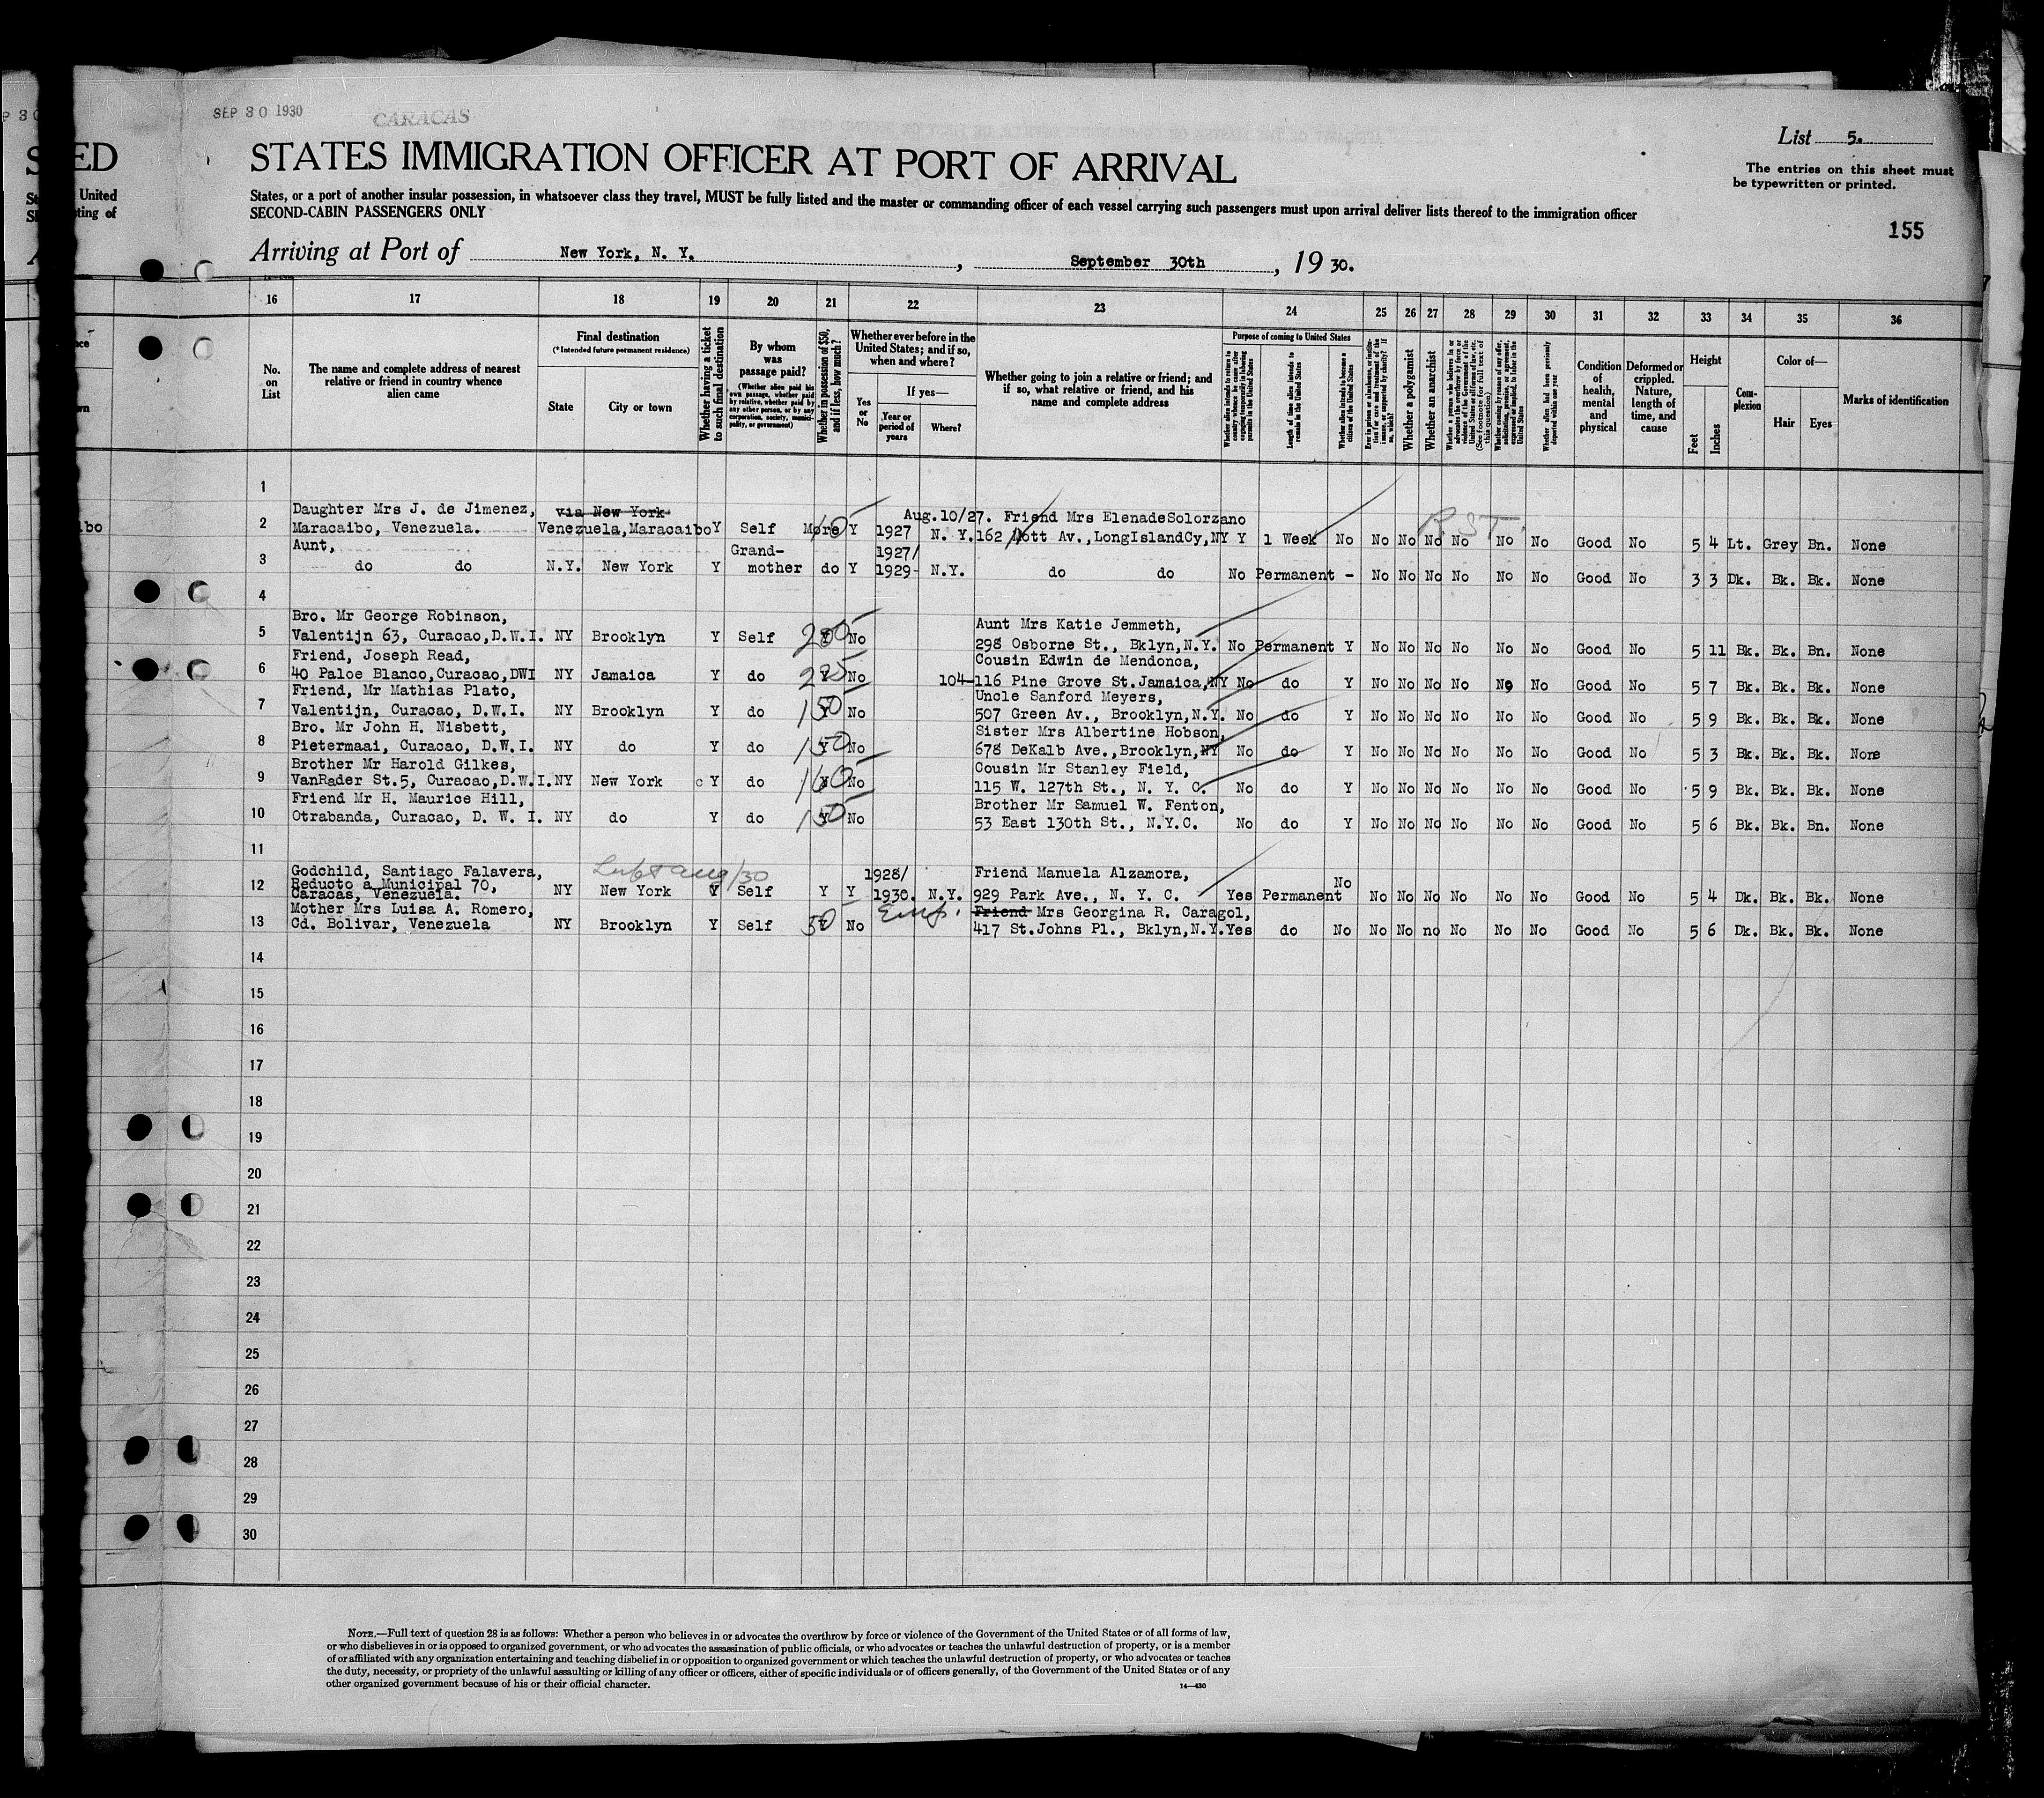 SEP 30 1930
CARACAS
STATES IMMIGRATION OFFICER AT PORT OF ARRIVAL
List 5.
The entries on this sheet must
be typewritten or printed.
States, or a port of another insular possession, in whatsoever class they travel, MUST be fully listed and the master or commanding officer of each vessel carrying such passengers must upon arrival deliver lists thereof to the immigration officer
SECOND-CABIN PASSENGERS ONLY
155
Arriving at Port of New York, N. Y., September 30th, 1930.
16 17 18 19 20 21 22 23 24 25 26 27 28 29 30 31 32 33 34 35 36
No. on List
The name and complete address of nearest relative or friend in country whence alien came
Final destination
(*Intended future permanent residence)
State
City or town
Whether having a ticket to such final destination
By whom was passage paid?
(Whether alien paid his own passage, whether paid by relative, whether paid by any other person, or by any corporation, society, municipality, or government)
Whether in possession of $50, and if less, how much?
Whether ever before in the United States; and if so, when and where?
Yes or No
If yes—
Year or period of years
Where?
Whether going to join a relative or friend; and if so, what relative or friend, and his name and complete address
Purpose of coming to United States
Length of time alien intends to remain in the United States
Whether alien intends to become a citizen of the United States
Whether a polygamist
Whether an anarchist
Whether alien had been previously deported within one year
Condition of health, mental and physical
Deformed or crippled. Nature, length of time, and cause
Height
Feet
Inches
Complexion
Color of—
Hair
Eyes
Marks of identification
1
Daughter Mrs J. de Jimenez, via New York Aug.10/27. Friend Mrs ElenadeSolorzano
2 Maracaibo, Venezuela. Venezuela,Maracaibo Y Self More Y 1927 N. Y. 162 Mott Av.,LongIslandCy,NY Y 1 Week No No No No No No No Good No 5 4 Lt. Grey Bn. None
Aunt, Grand- 1927/
3 do do N.Y. New York Y mother do Y 1929- N.Y. do do No Permanent - No No No No No No Good No 3 3 Dk. Bk. Bk. None
4
Bro. Mr George Robinson, Aunt Mrs Katie Jemmeth,
5 Valentijn 63, Curacao,D.W.I. NY Brooklyn Y Self 200 Y No 298 Osborne St., Bklyn,N.Y. No Permanent Y No No No No No No Good No 5 11 Bk. Bk. Bn. None
Friend, Joseph Read, Cousin Edwin de Mendonca,
6 40 Paloe Blanco,Curacao,DWI NY Jamaica Y do Y No 104-116 Pine Grove St.Jamaica,NY No do Y No No No No No No Good No 5 7 Bk. Bk. Bk. None
Friend, Mr Mathias Plato, Uncle Sanford Meyers,
7 Valentijn, Curacao, D.W.I. NY Brooklyn Y do 150 Y No 507 Green Av., Brooklyn,N.Y. No do Y No No No No No No Good No 5 9 Bk. Bk. Bk. None
Bro. Mr John H. Nisbett, Sister Mrs Albertine Hobson,
8 Pietermaai, Curacao, D.W.I. NY do Y do 150 Y No 678 DeKalb Ave.,Brooklyn,NY No do Y No No No No No No Good No 5 3 Bk. Bk. Bk. None
Brother Mr Harold Gilkes, Cousin Mr Stanley Field,
9 VanRader St.5, Curacao,D.W.I. NY New York c Y do 160 Y No 115 W. 127th St., N. Y. C. No do Y No No No No No No Good No 5 9 Bk. Bk. Bk. None
Friend Mr H. Maurice Hill, Brother Mr Samuel W. Fenton,
10 Otrabanda, Curacao, D. W. I. NY do Y do 150 Y No 53 East 130th St., N.Y.C. No do Y No No No No No No Good No 5 6 Bk. Bk. Bn. None
11
Godchild, Santiago Falavera, 1928/ Friend Manuela Alzamora,
Reducto a Municipal 70, No
12 Caracas, Venezuela. NY New York Y Self Y Y 1930. N.Y. 929 Park Ave., N. Y. C. Yes Permanent No No No No No No Good No 5 4 Dk. Bk. Bk. None
Mother Mrs Luisa A. Romero, Friend Mrs Georgina R. Caragol,
13 Cd. Bolivar, Venezuela NY Brooklyn Y Self 50 Y No 417 St.Johns Pl., Bklyn,N.Y. Yes do No No No no No No No Good No 5 6 Dk. Bk. Bk. None
14
15
16
17
18
19
20
21
22
23
24
25
26
27
28
29
30
NOTE.—Full text of question 28 is as follows: Whether a person who believes in or advocates the overthrow by force or violence of the Government of the United States or of all forms of law,
or who disbelieves in or is opposed to organized government, or who advocates the assassination of public officials, or who advocates or teaches the unlawful destruction of property, or is a member
of or affiliated with any organization entertaining and teaching disbelief in or opposition to organized government or which teaches the unlawful destruction of property, or who advocates or teaches
the duty, necessity, or propriety of the unlawful assaulting or killing of any officer or officers, either of specific individuals or of officers generally, of the Government of the United States or of any
other organized government because of his or their official character.
14—430